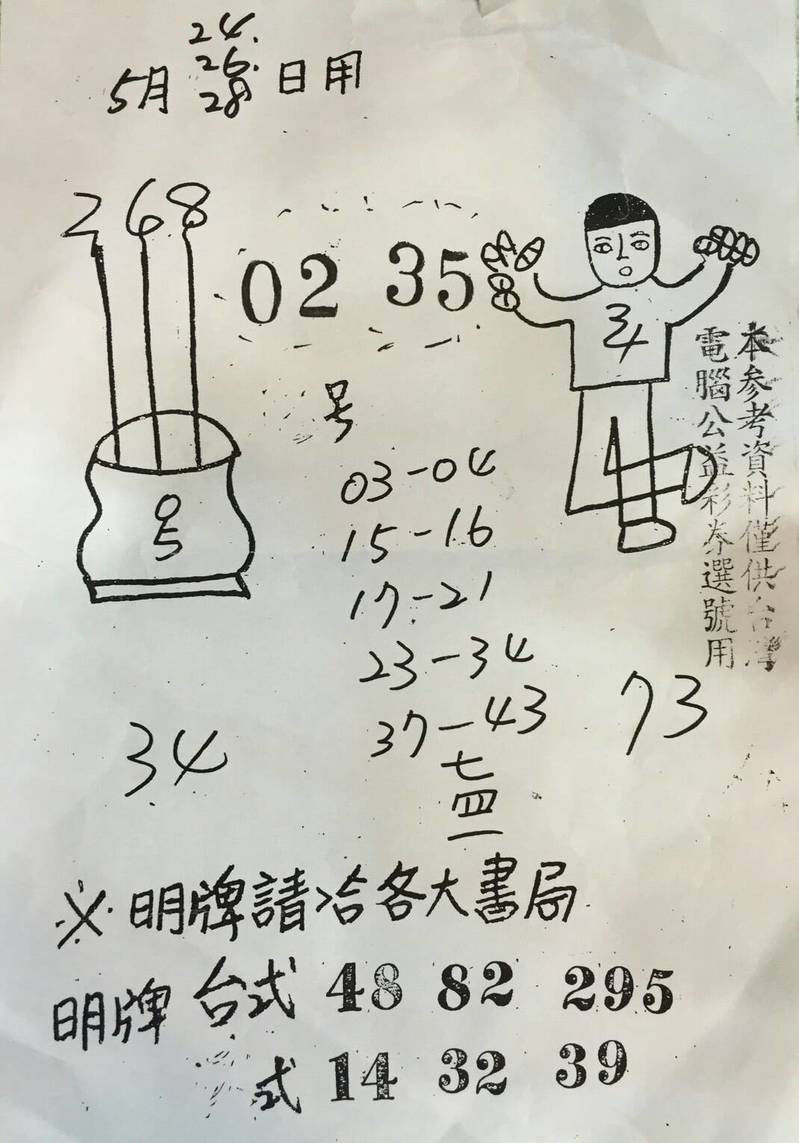 24.
26.
5月 28 日用
2 6 8
02 35
号
03-04
15-16
17-21
23-34
37-43
七
四
一
34
73
本参考資料僅供台灣
電腦公益彩券選號用
※明牌請洽各大書局
明牌 台式 48 82 295
式 14 32 39